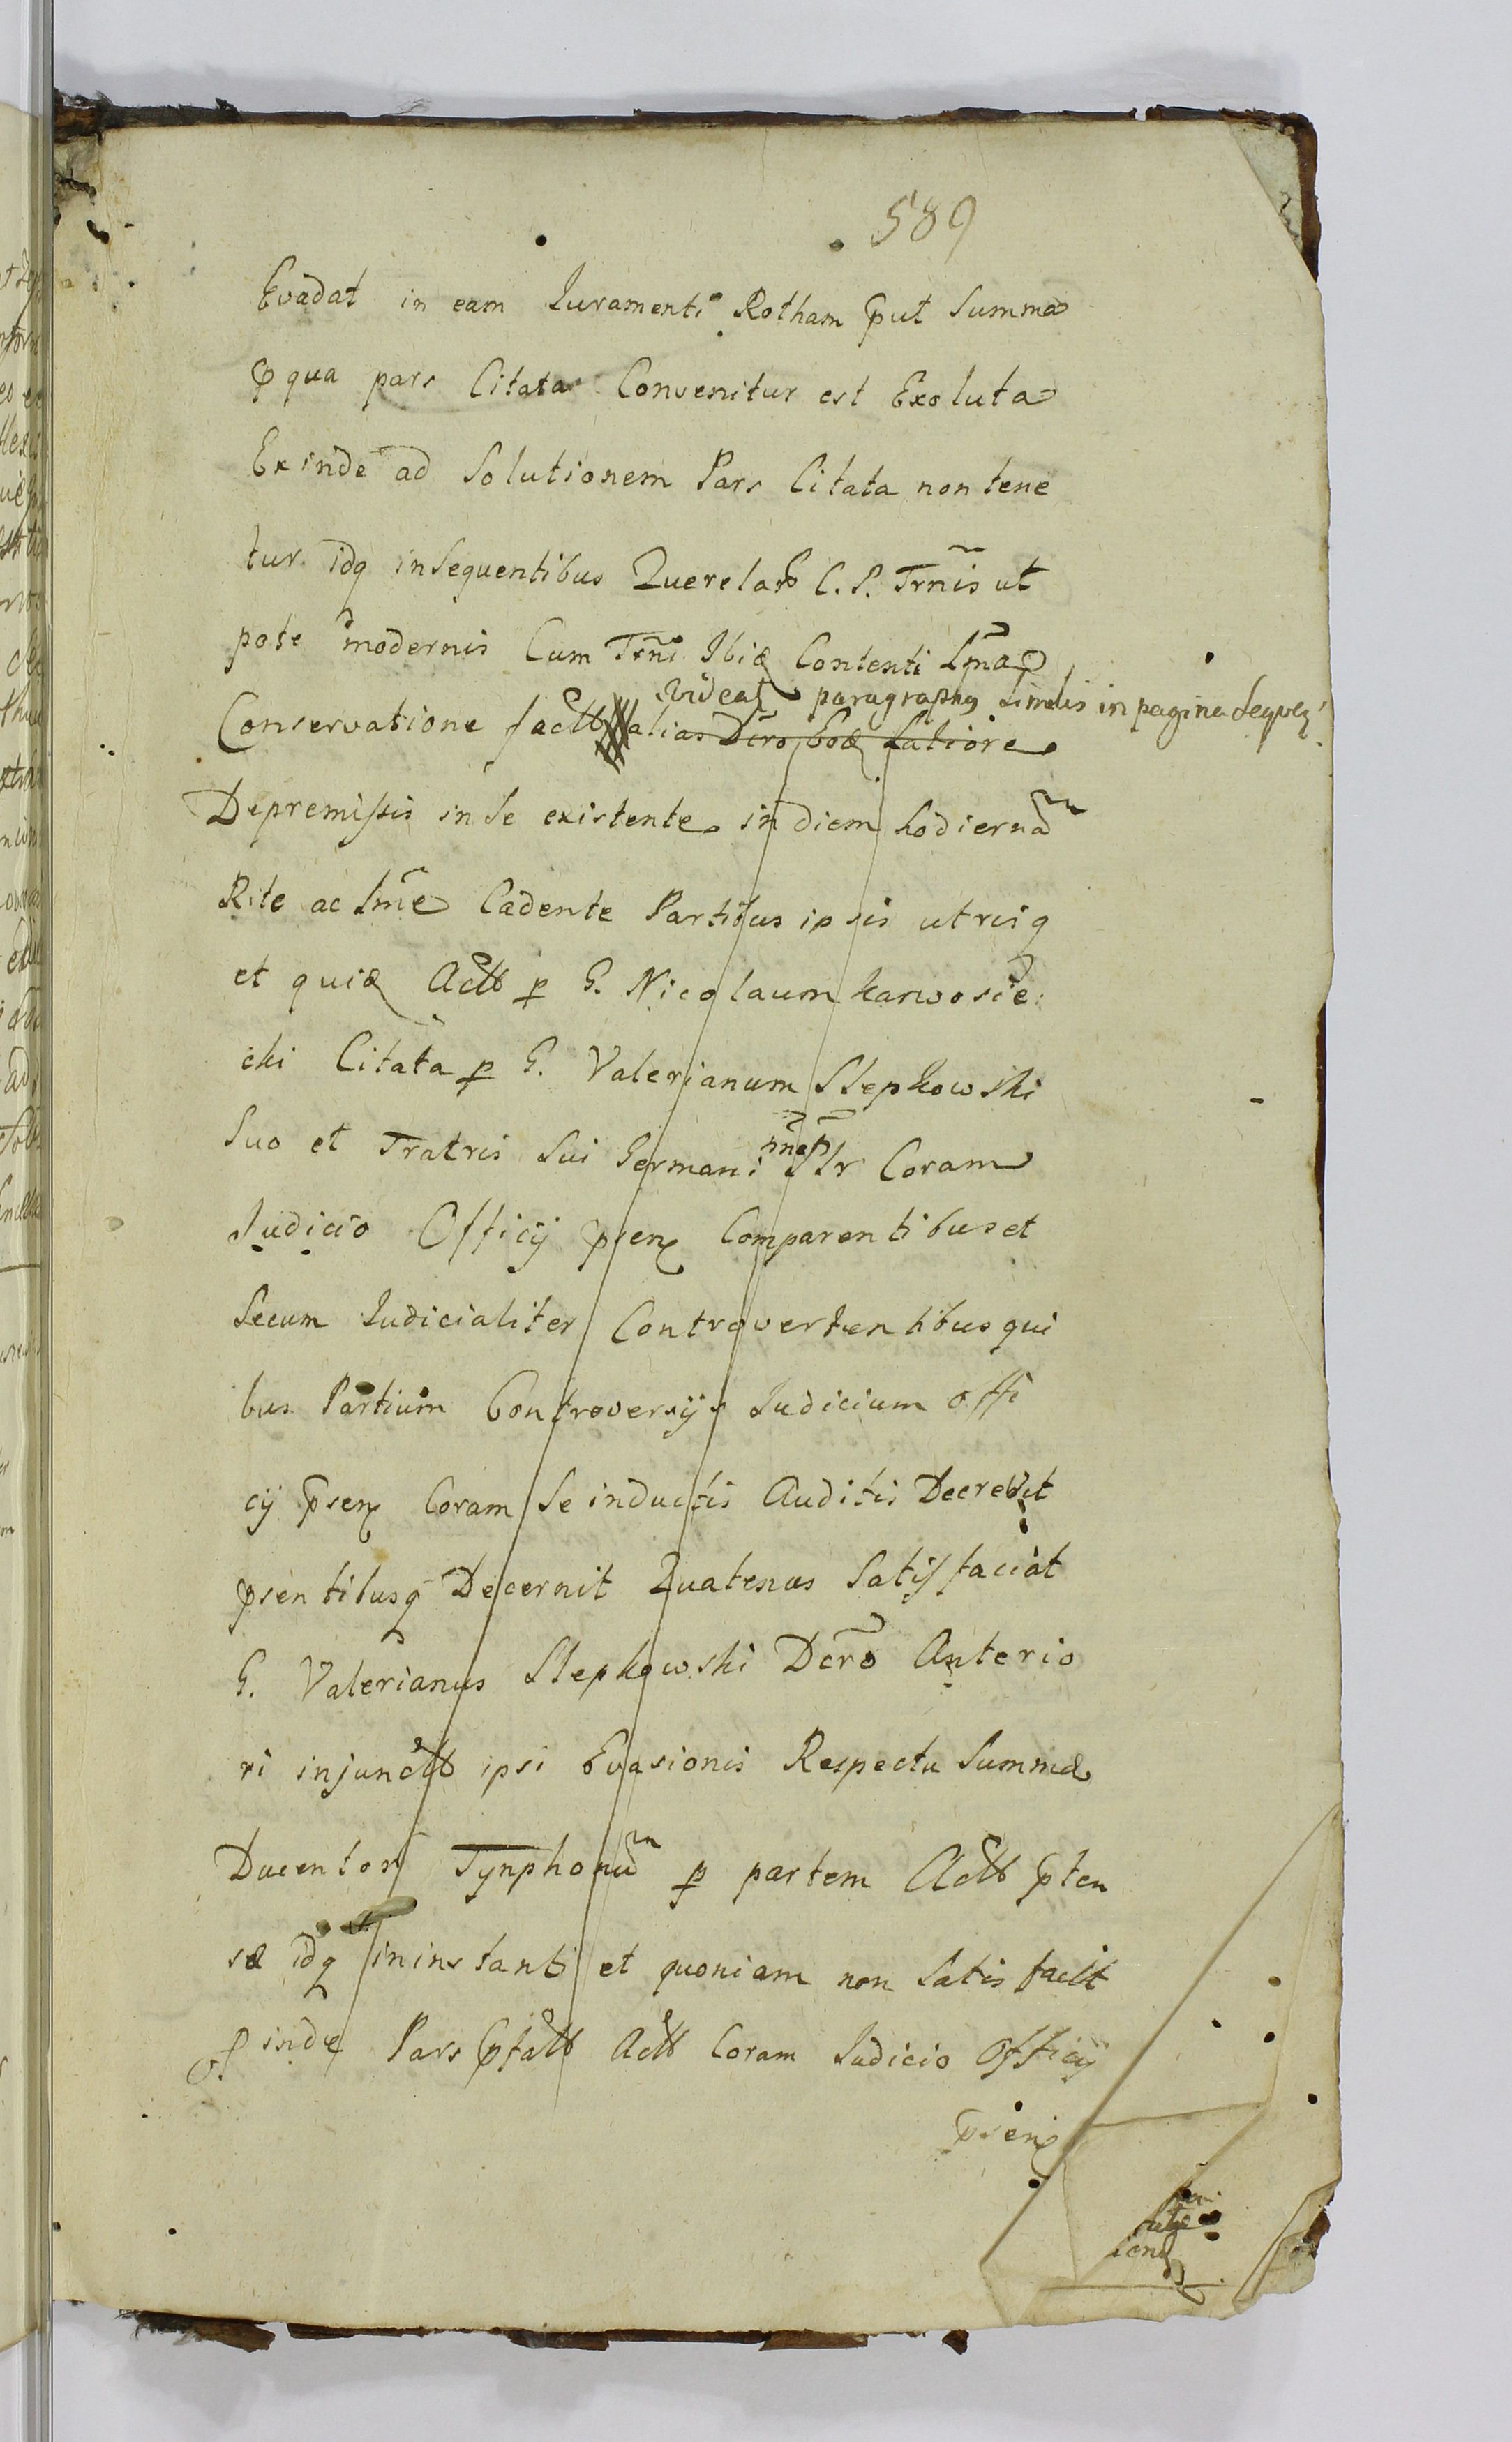 589
Evadat in eam Iuramenti Rotham put Summa
p qua pars Citata Convenitur est Exoluta
Exinde ad Solutionem Pars Citata non tene
tur idq insequentibus Querelar C. P. Trñis ut
pote modernis Cum Trñi Ibiq Contenti Lma
Videat paragraphus similis in pagina sequen
Conservatione factt alias Dcro Eoq latiore
Depremissis in se existente in diem hodiernã
Rite ac lme Cadente Partibus ipsis utrisq
et quiq Actt p G. Nicolaum karwosie
cki Citata p G. Valerianum Slepkowski
Suo et Fratris Sui Germani nne Slr Coram
Iudicio Officij psen Comparentibus et
Secum Iudicialiter Controvertentibus qui
bus Partium Controversijs Iudicium offi
cij psen Coram Se inductis Auditis Decrevit
psentibusq Decernit Quatenus Satisfaciat
G. Valerianus Slepkowski Dcro Anterio
ri injunctt ipsi Evasionis Respectu Summæ
Ducentor Tynphonũ p partem Actt pten
sæ idq in instanti et quoniam non Satis facit
pinde Pars ptatt Actt Coram Iudicio Officij
psen